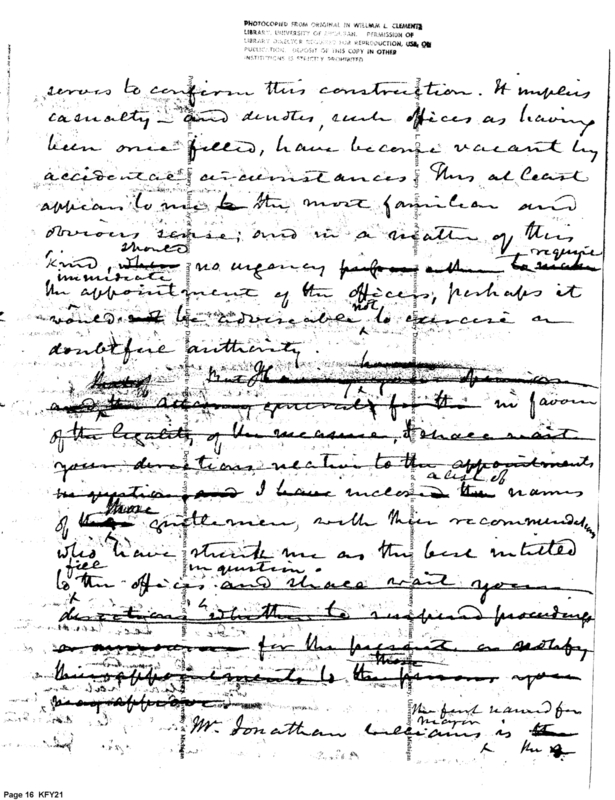 PHOTOCOPIED FROM ORIGINAL IN WILLIAM L. CLEMENTS
LIBRARY, UNIVERSITY OF MICHIGAN. PERMISSION OF
LIBRARY DIRECTOR REQUIRED FOR REPRODUCTION, USE, OR
PUBLICATION. DEPOSIT OF THIS COPY IN OTHER
INSTITUTIONS IS STRICTLY PROHIBITED
serves to confirm this construction. It implies
casualty – and denotes, such offices as having
been once filled, have become vacant by
accidental circumstances. This at least
appears to me to the most familiar and
obvious sense; and in a matter of this
should require
kind, where no urgency to make
immediate
the appointment of the officers, perhaps it
would not be adviseable not to exercise a
doubtful authority.
But If your opinion
and the attorney general for the in favour
of the legality of the measure, I shall wait
your directions relative to the appointments
a list of
in question and I have inclosed the names
those
of these gentlemen, with their recommendations
who have struck me as the best intitled
fill in question.
to the offices and shall wait your
directions whether to suspend proceedings
for the present or notify
those
their appointments to the persons you
may approve.
the first named for
major
Mr. Jonathan Williams is the
the
Page 16 KFY21